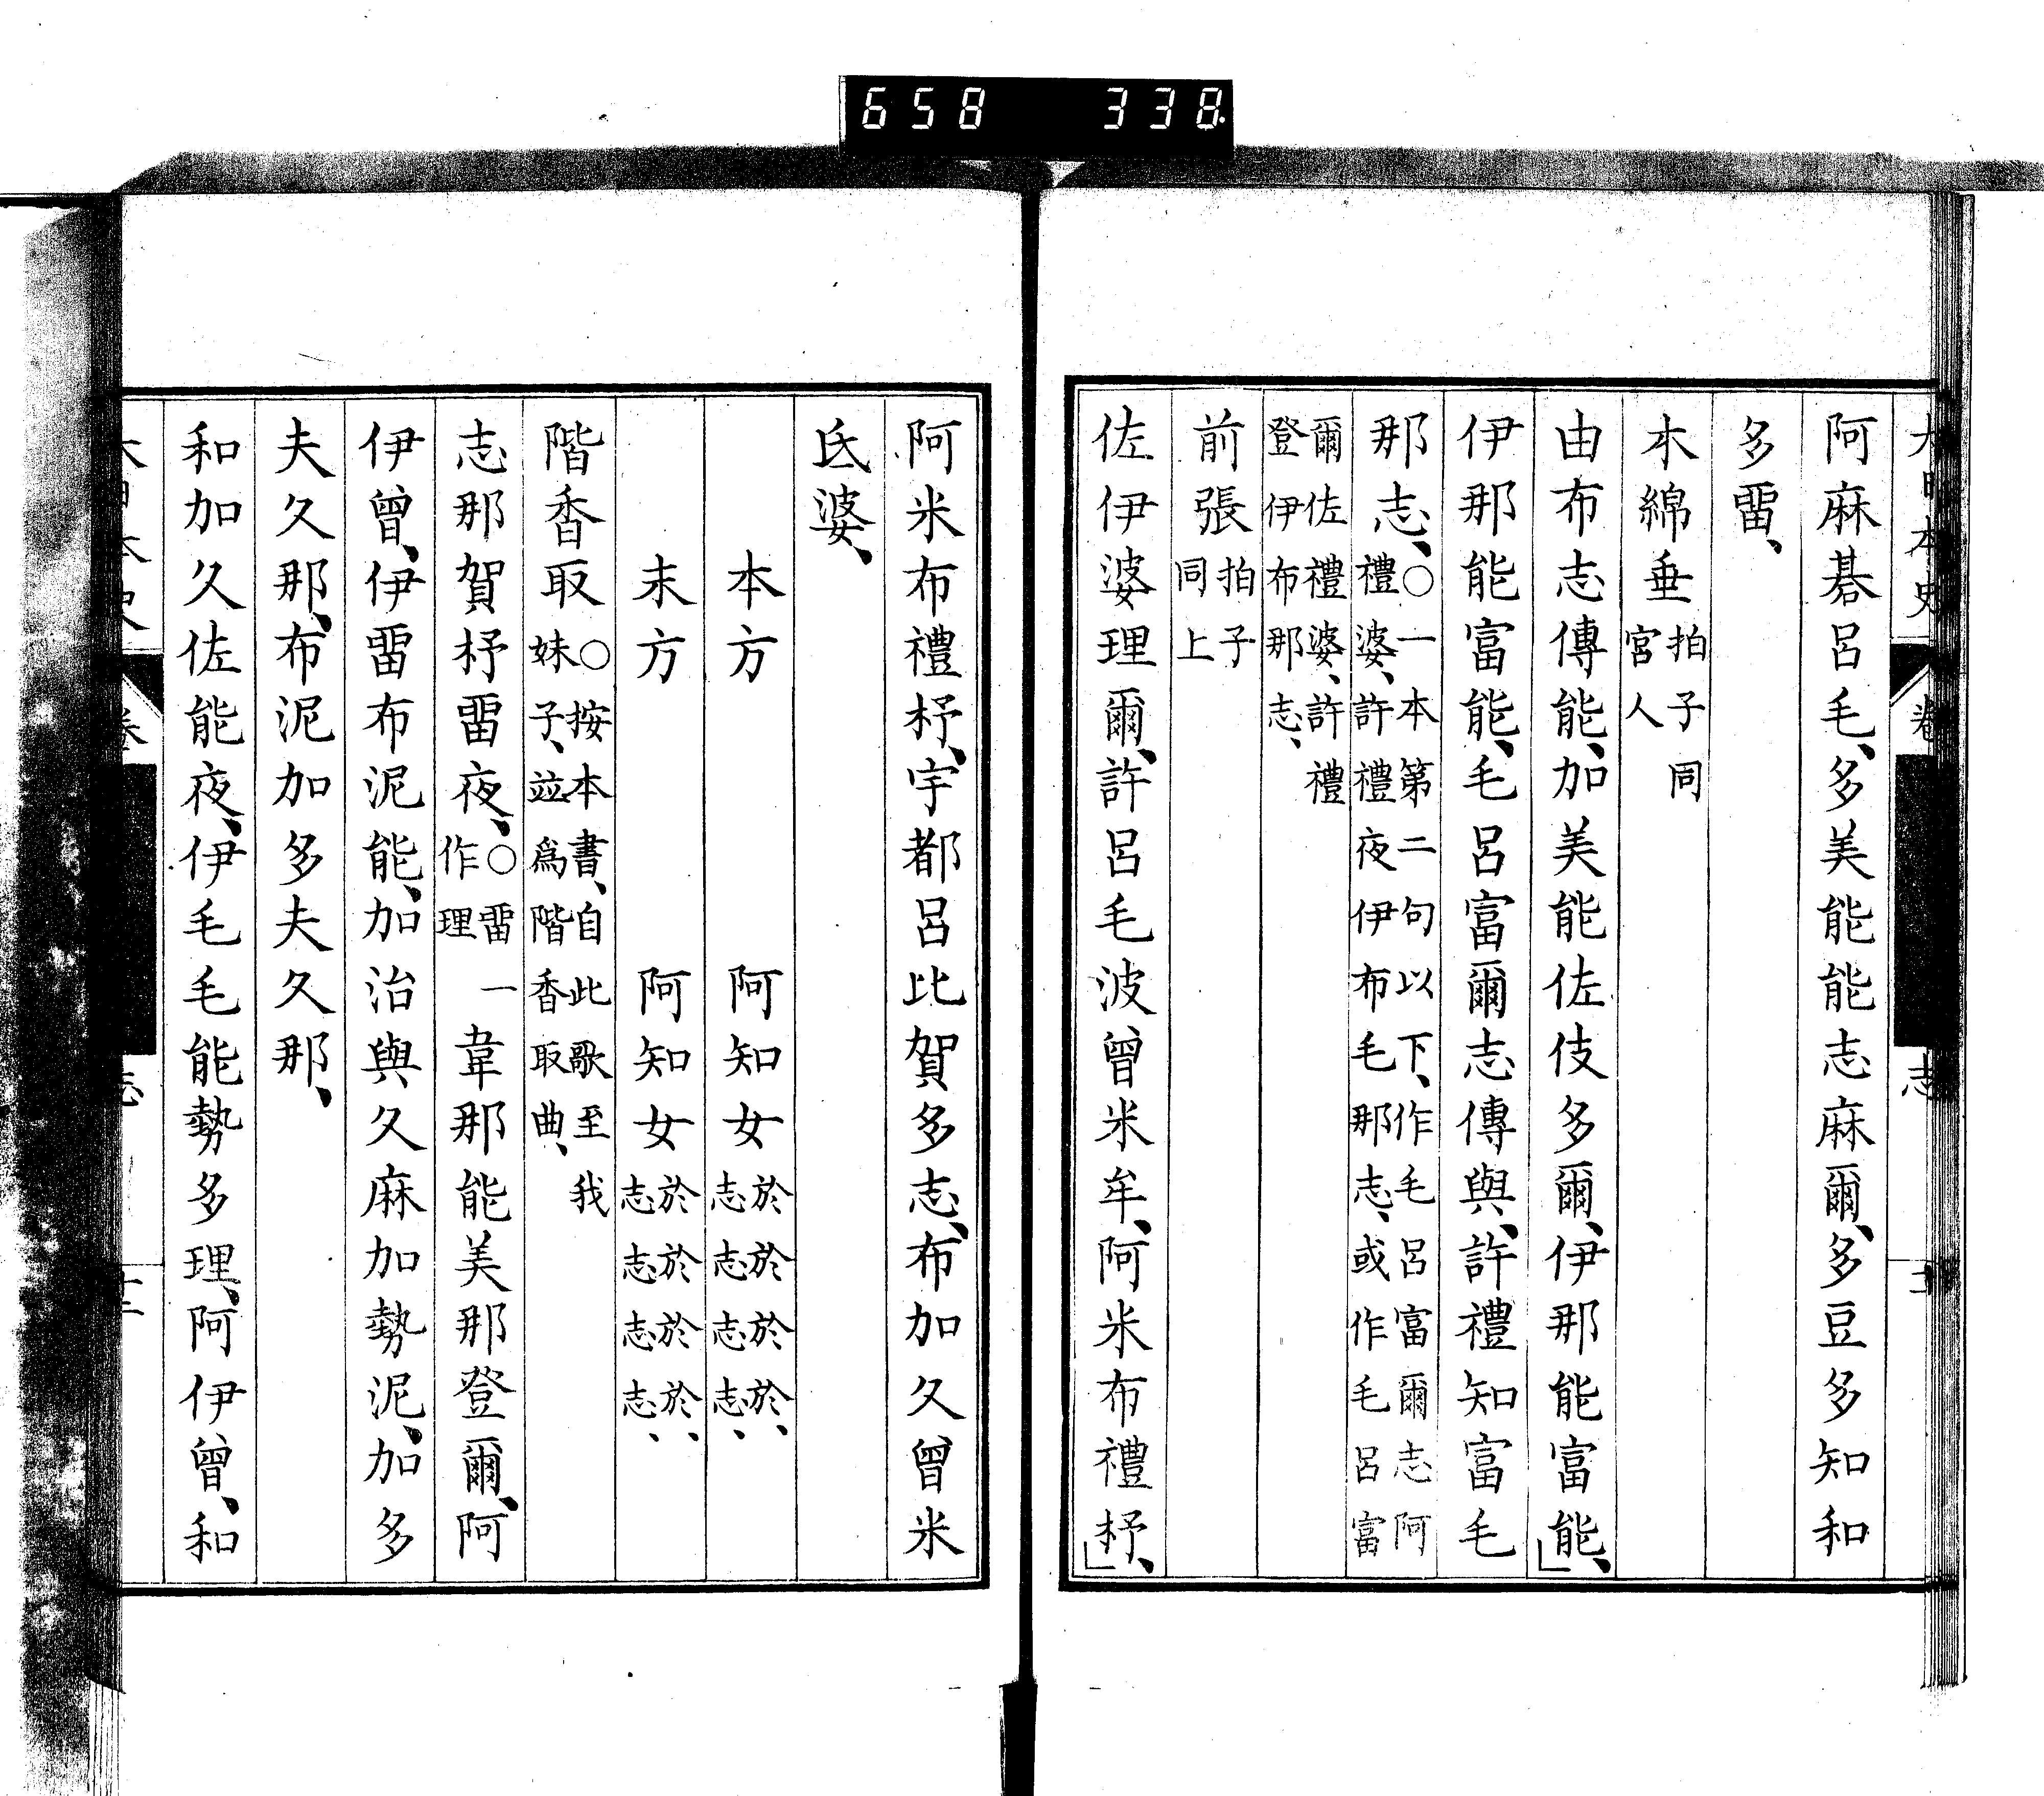 658 338
大日本史 卷 志
阿麻碁呂毛、多美能能志麻爾、多豆多知和
多畱、
木綿垂 拍子同宮人
由布志傳能、加美能佐伎多爾、伊那能富能、」
伊那能富能、毛呂富爾志傳與、許禮知富毛
那志、○一本第二句以下、作毛呂富爾志阿禮婆、許禮夜伊布毛那志、或作毛呂富
爾佐禮婆、許禮登伊布那志、
前張 拍子同上
佐伊婆理爾、許呂毛波曾米牟、阿米布禮杼、」
阿米布禮杼、宇都呂比賀多志、布加久曾米
氐婆、
本方 阿知女 於於於於、志志志志、
末方 阿知女 於於於於、志志志志、
階香取 ○按本書、自此歌至我妹子、竝爲階香取曲、
志那賀杼畱夜、○畱一作理 韋那能美那登爾、阿
伊曾、伊畱布泥能、加治與久麻加勢泥、加多
夫久那、布泥加多夫久那、
和加久佐能夜、伊毛毛能勢多理、阿伊曾、和
大日本史 卷 志